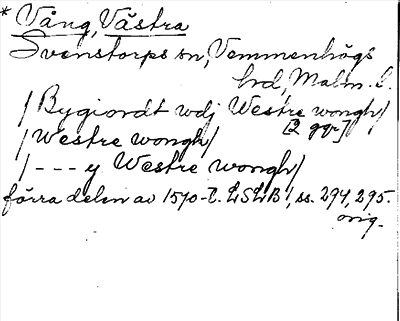 * Vång, Västra
Svenstorps sn, Vemmenhögs
hrd, Malm. l.
/Bygiordt wdj Westre wongh/
[2 ggr]
/Westre wongh/
/- - - y Westre wongh/
förra delen av 1570-t. LSLB 1, ss. 294, 295.
orig.